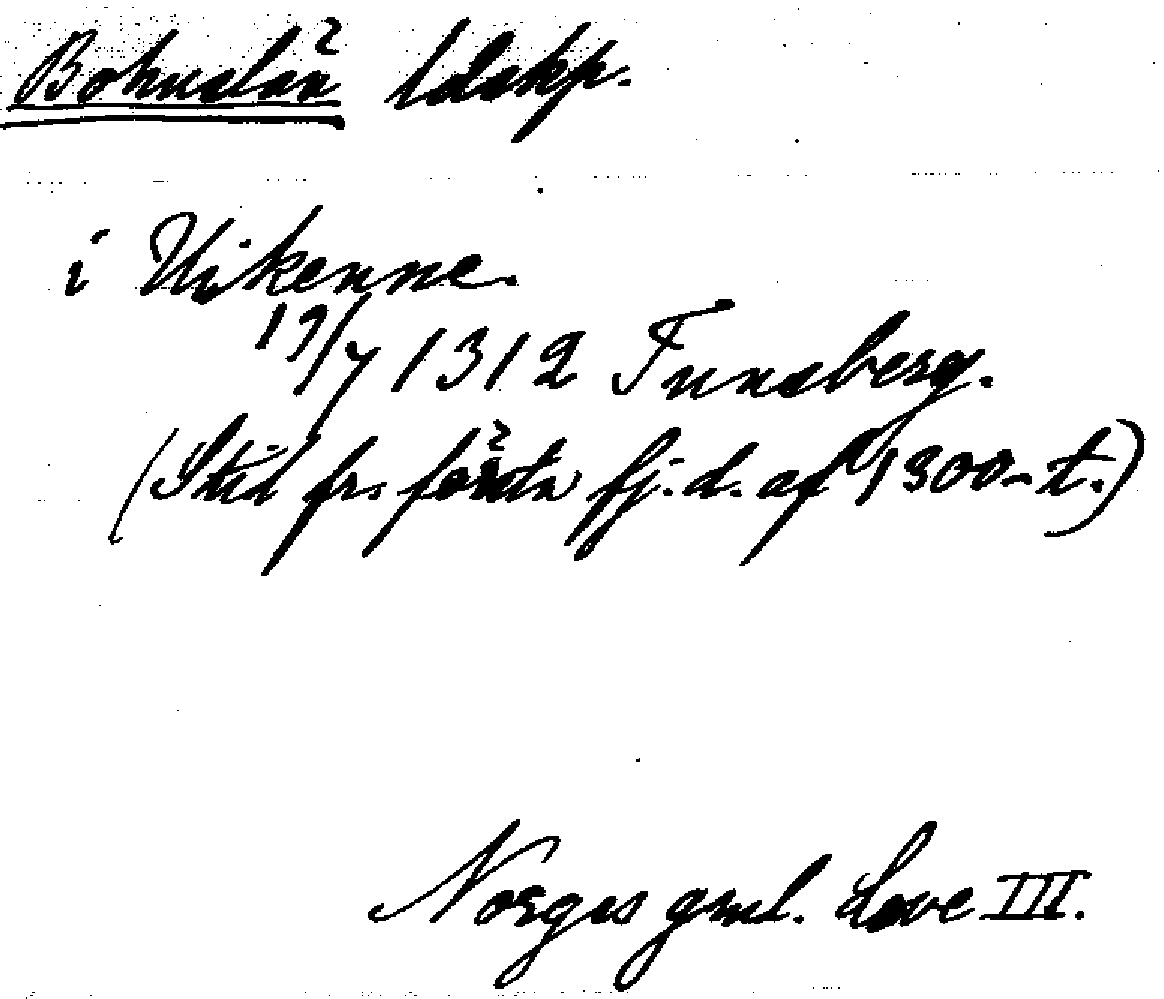 Bohuslän ldskp.
i Uikenne.
19/7 1312 Tunsberg.
(Stid fr. första fj.d. af 1300-t.)
Norges gml. Love III.